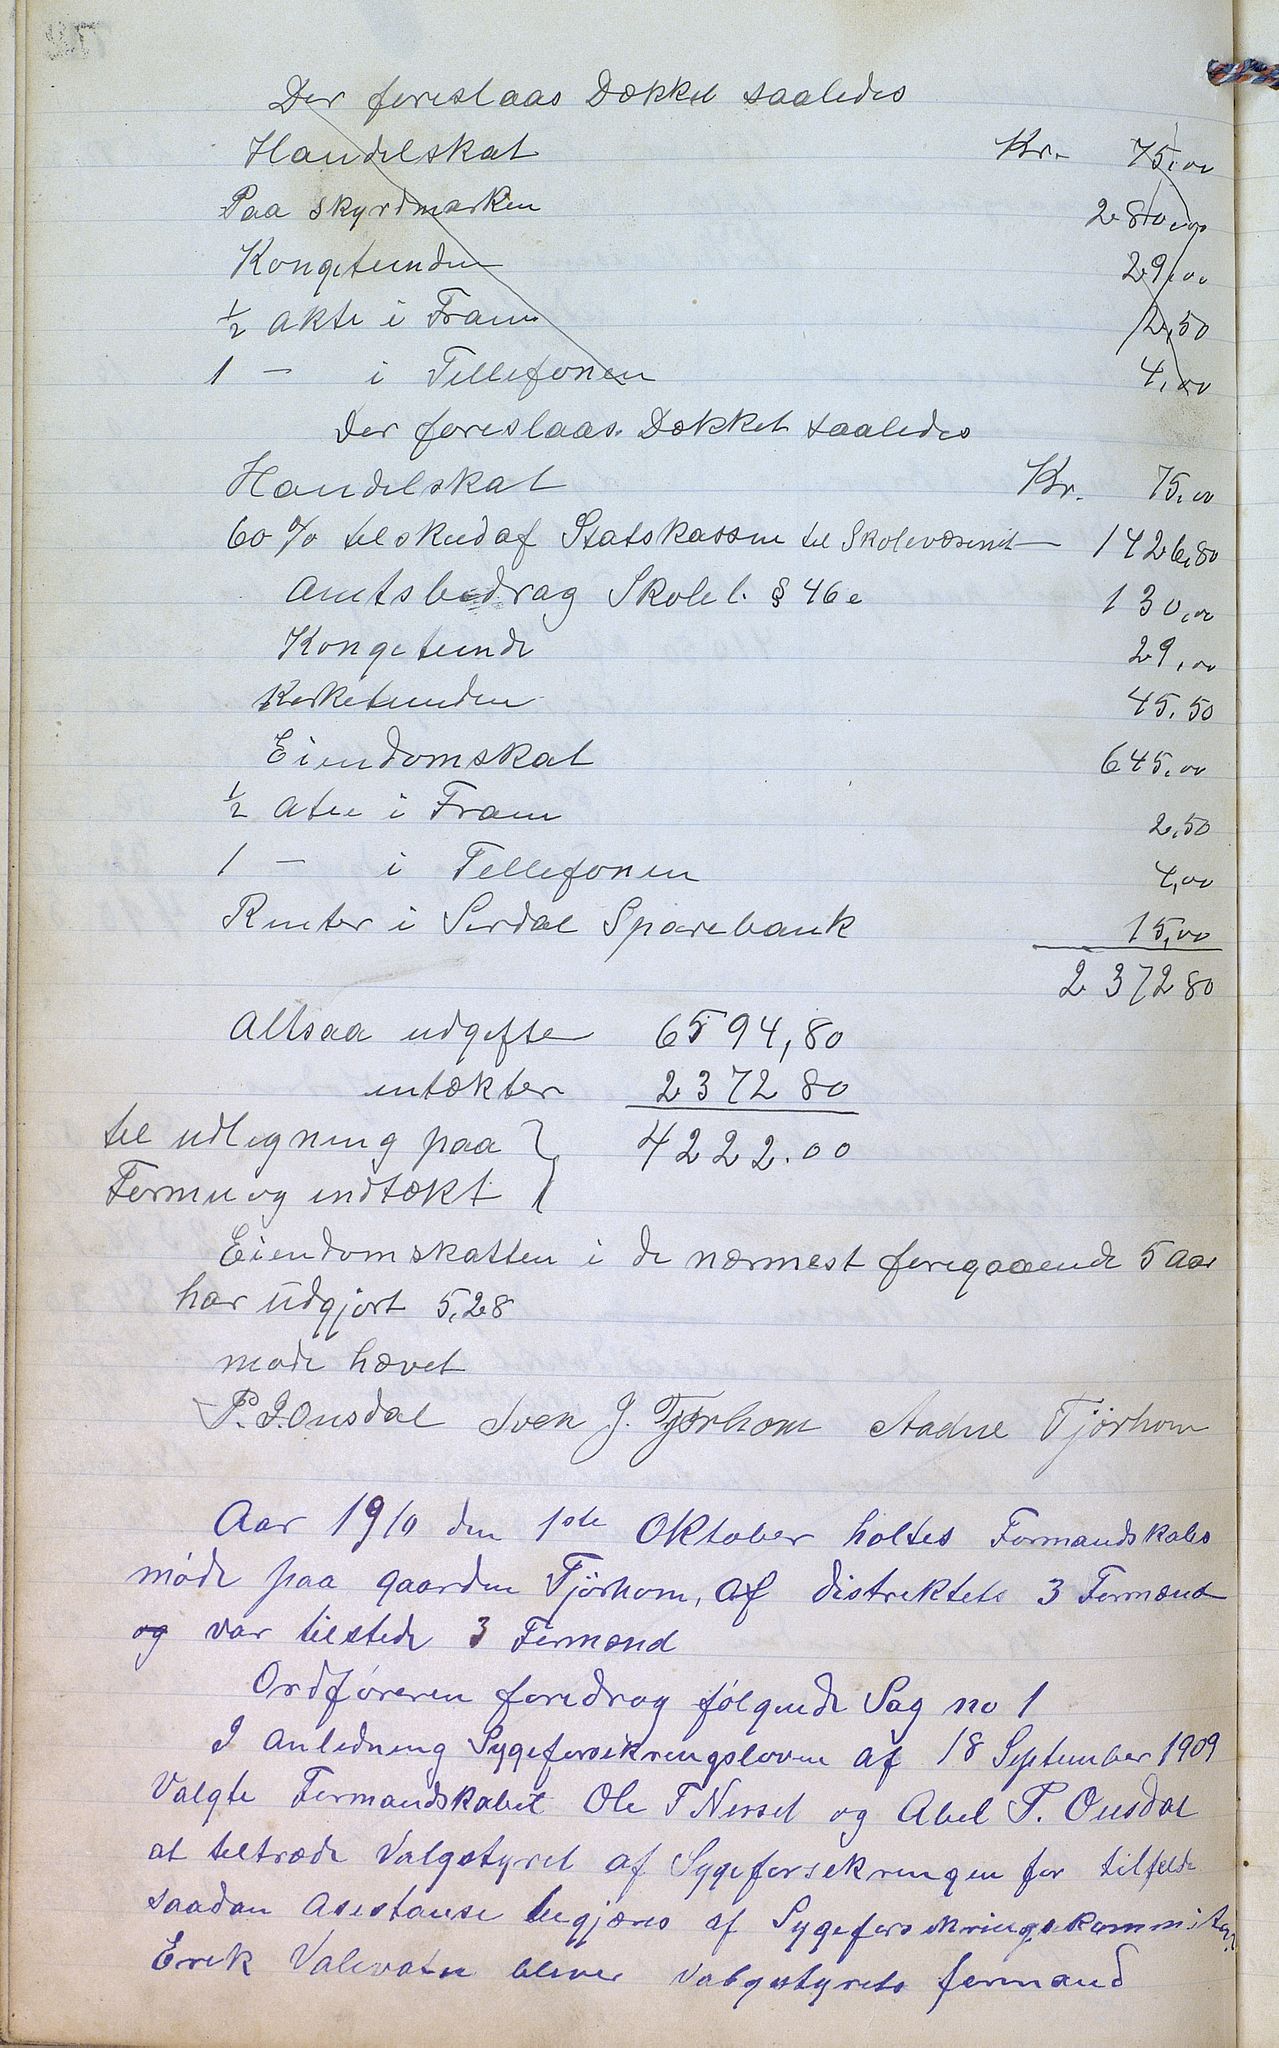 Der foreslaas Dækket saaledes
Handelskat Kr. 75,00
Paa skyrdmarken 280,00
Kongetienden 29,00
1/2 akte i Fram 2,50
1 — i Tellefonen 4,00
Der foreslaas Dækket saaledes
Handelskat Kr. 75,00
60 % telskud af Statskassen tel Skolevæsenet 1426,80
Amtsbedrag Skolel. § 46 e 130,00
Kongetiende 29,00
Kerketienden 45,50
Eiendomskat 645,00
1/2 atie i Fram 2,50
1 — i Tellefonen 4,00
Renter i Serdal Sparebank 15,00
2 372 80
Altsaa udgifte 6594,80
entækter 2372 80
tel udligning paa 4222.00
Formu og indtækt
Eiendomskatten i de nærmest foregaaende 5 aar
har udgjort 5,28
møde hævet
P. J. Ousdal Sven J. Tjørhom Aadne Tjørhom
Aar 1910 den 1ste Oktober holtes Formandskabs
møde paa gaarden Tjörhom, af distriktets 3 Formænd
og var tilstede 3 Formænd
Ordføreren foredrog følgende Sag no 1
I anledning Sygeforsikringsloven af 18 September 1909
Valgte Formandskabet Ole T Nesset og Abel P. Ousdal
at teltræde Valgstyret af Sygeforsekringen for tilfelde
saadan Asestanse begjæres af Sygeforsikringskommisten
Erek Valevatn bliver Valgstyrets formand